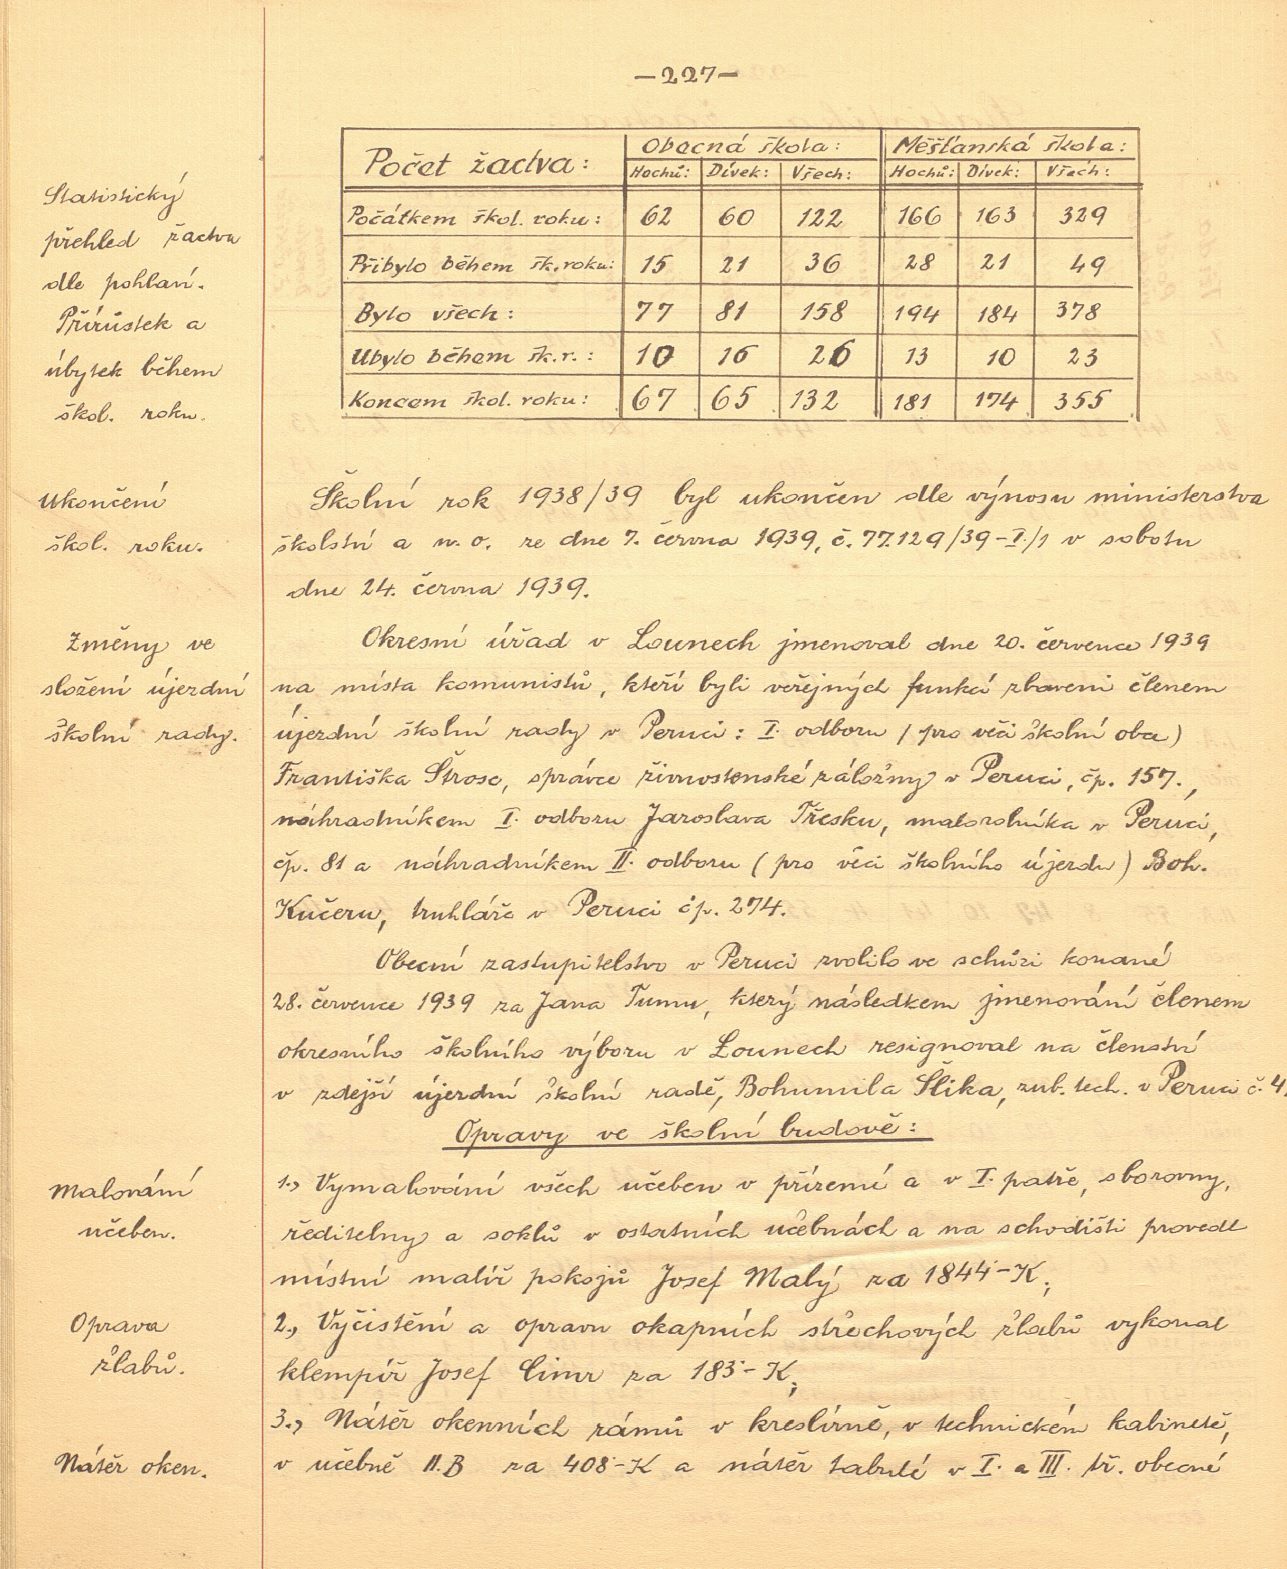 —227—
Počet žactva: Obecná škola: Měšťanská škola:
Hochů: Dívek: Všech: Hochů: Dívek: Všech:
Počátkem škol. roku: 62 60 122 166 163 329
Přibylo během šk. roku: 15 21 36 28 21 49
Bylo všech: 77 81 158 194 184 378
Ubylo během šk. r.: 10 16 26 13 10 23
Koncem škol. roku: 67 65 132 181 174 355
Statistický
přehled žactva
dle pohlaví.
Přírůstek a
úbytek během
škol. roku.
Ukončení
škol. roku.
Školní rok 1938/39 byl ukončen dle výnosu ministerstva
školství a n. o. ze dne 7. června 1939, č. 77.129/39-I./1 v sobotu
dne 24. června 1939.
Změny ve
složení újezdní
školní rady.
Okresní úřad v Lounech jmenoval dne 20. července 1939
na místa komunistů, kteří byli veřejných funkcí zbaveni členem
újezdní školní rady v Peruci: I. odboru (pro věci školní obce)
Františka Štrose, správce živnostenské záložny v Peruci, čp. 157.,
náhradníkem I. odboru Jaroslava Třesku, malorolníka v Peruci,
čp. 81 a náhradníkem II. odboru (pro věci školního újezdu) Boh.
Kučeru, truhláře v Peruci čp. 274.
Obecní zastupitelstvo v Peruci zvolilo ve schůzi konané
28. července 1939 za Jana Tumu, který následkem jmenování členem
okresního školního výboru v Lounech resignoval na členství
v zdejší újezdní školní radě, Bohumila Šlika, zub. tech. v Peruci č. 4.
Opravy ve školní budově:
Malování
učeben.
1., Vymalování všech učeben v přízemí a v I. patře, sborovny,
ředitelny a soklů v ostatních učebnách a na schodišti provedl
místní malíř pokojů Josef Malý za 1844·-K;
Oprava
žlabů.
2., Vyčistění a opravu okapních střechových žlabů vykonal
klempíř Josef Cimr za 183·-K;
3., Nátěr okenních rámů v kreslírně, v technickém kabinetě,
Nátěr oken.
v učebně II.B za 408·-K a nátěr tabulí v I. a III. tř. obecné